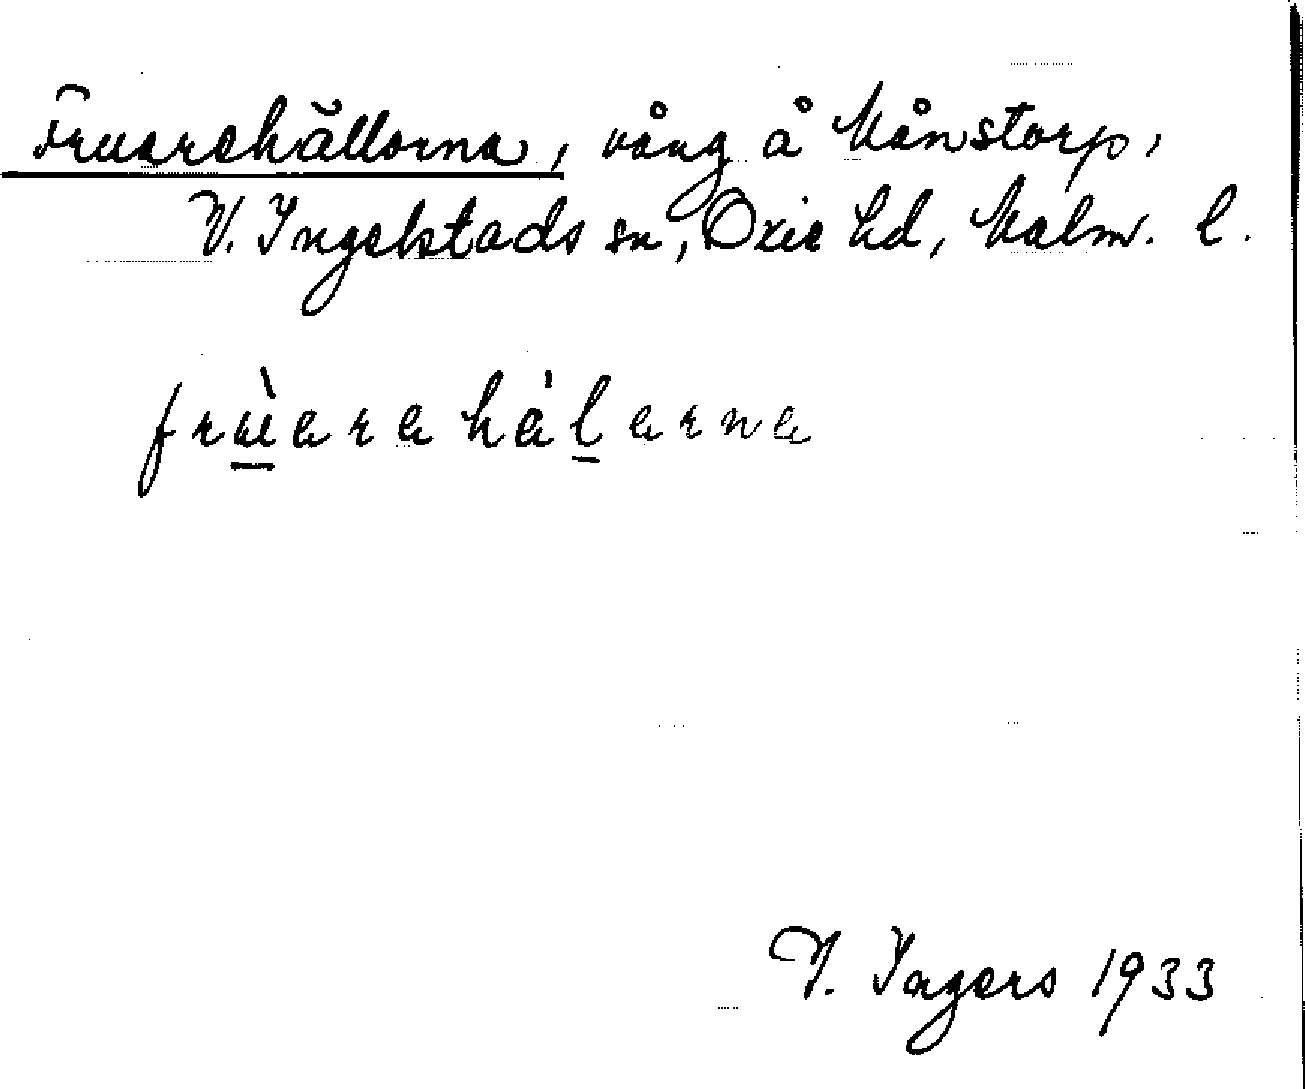 Fruarehällorna, vång å Månstorp,
V. Ingelstads sn, Oxie hd, Malm. l.
frùarahälarna
N. Ingers 1933